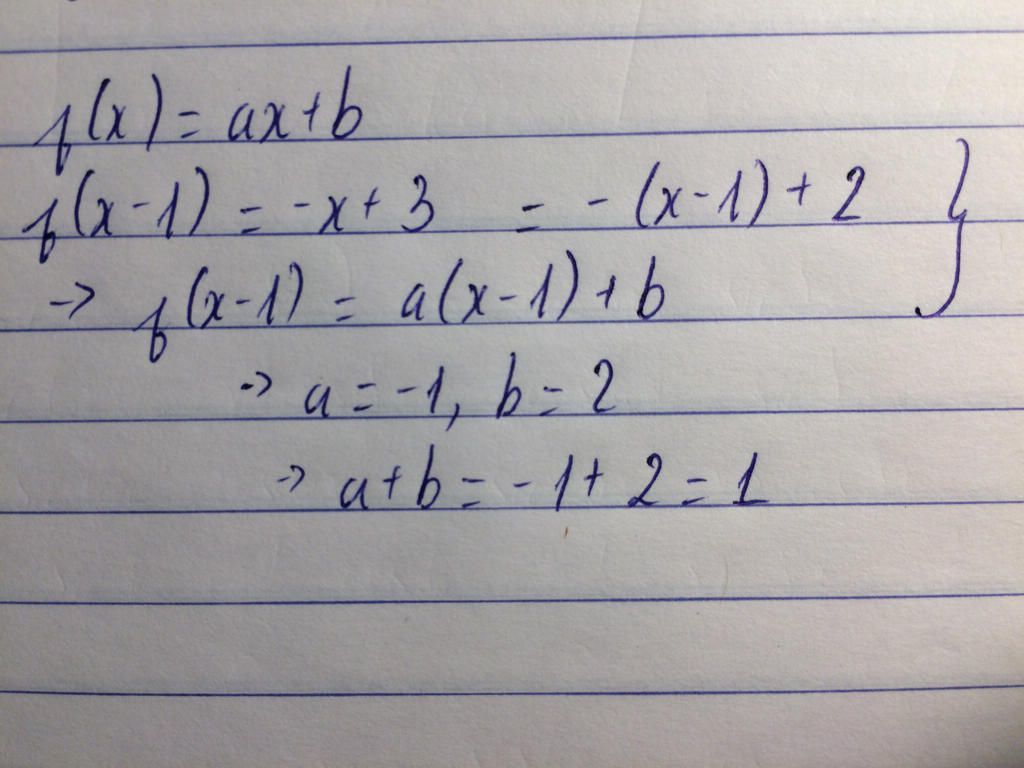 f(x) = ax+b
f(x-1) = -x+3 = -(x-1)+2 }
-> f(x-1) = a(x-1)+b
-> a = -1, b = 2
-> a+b = -1+2 = 1